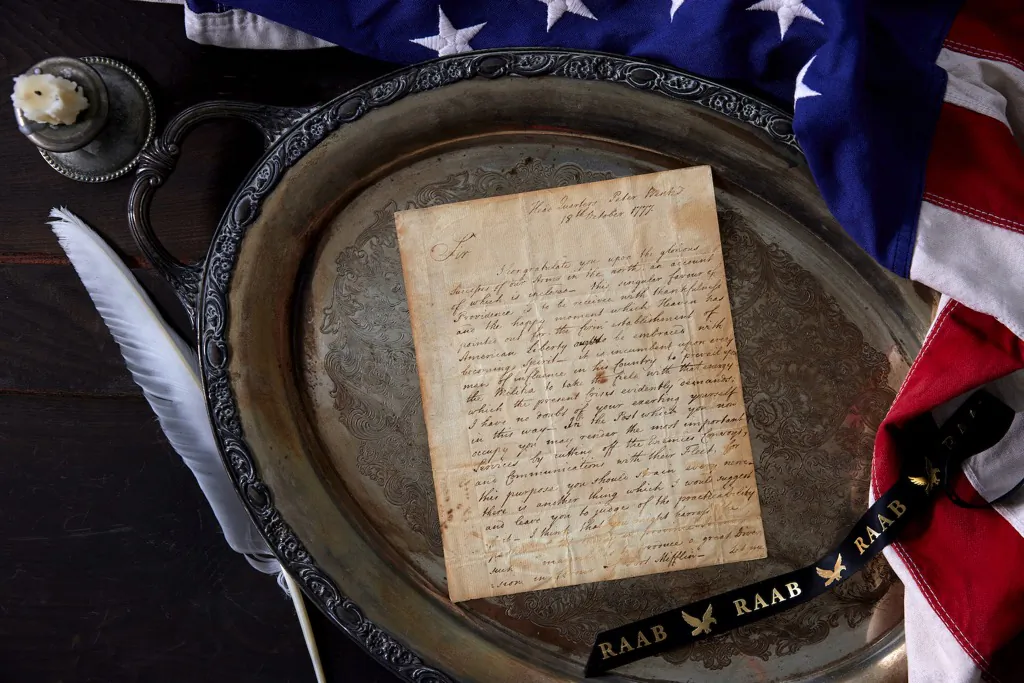 Head Quarters Peter Wentz
18th October 1777
Sir
I congratulate you upon the glorious
Success of our Arms in the north an account
of which is inclos. The singular favour of
Providence is to be receive with thankfulness
and the happy moment which Heaven has
pointed out for the firm establishment of
American Liberty ought to be embraced with
becoming Spirit it is incumbent upon every
man of influence in his Country to prevail upon
the Militia to take the field with that energy
which the present crisis evidently demands,
I have no doubt of your exerting yourself
in this way. In the Post which you now
occupy you may render the most important
Services by cutting off the Enemies Convoys
and Communications with their Fleet,
this purpose you should strain every nerve
there is another thing which I would suggest
and leave you to judge of the practicability
of it I think that
such
Mifflin
RAAB RAAB RAAB RAAB